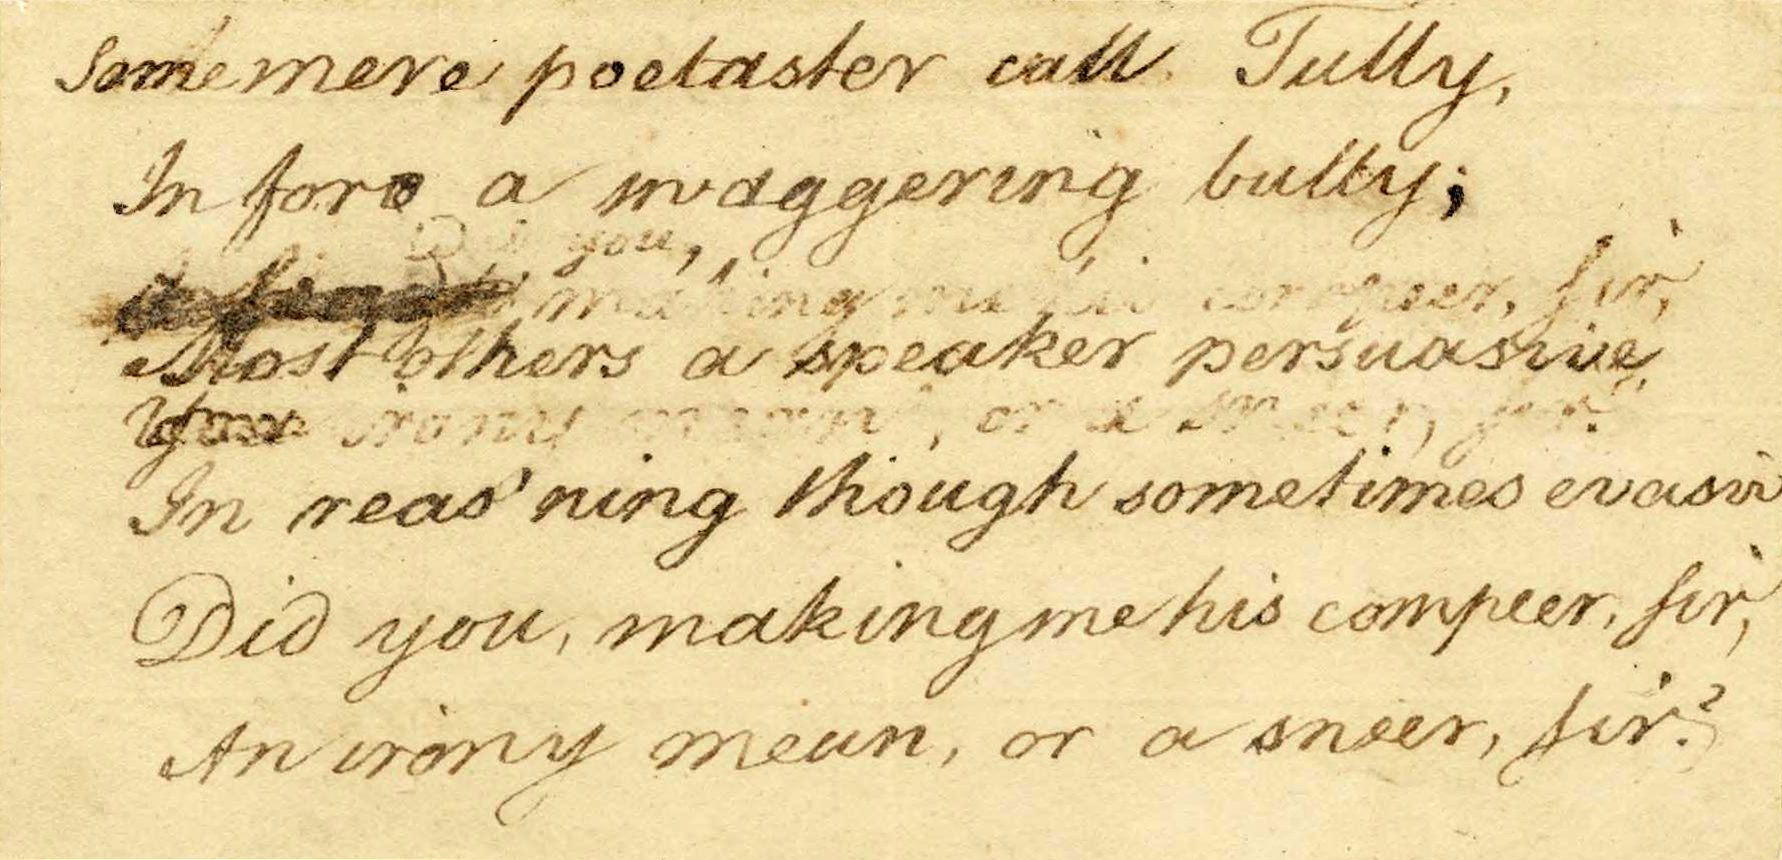 Some mere poetaster call Tully,
In foro a swaggering bully;
Did you,
making me his compeer, sir,
Most others a speaker persuasive,
irony mean, or a sneer, sir?
In reas'ning though sometimes evasiv
Did you, making me his compeer, sir,
An irony mean, or a sneer, sir?